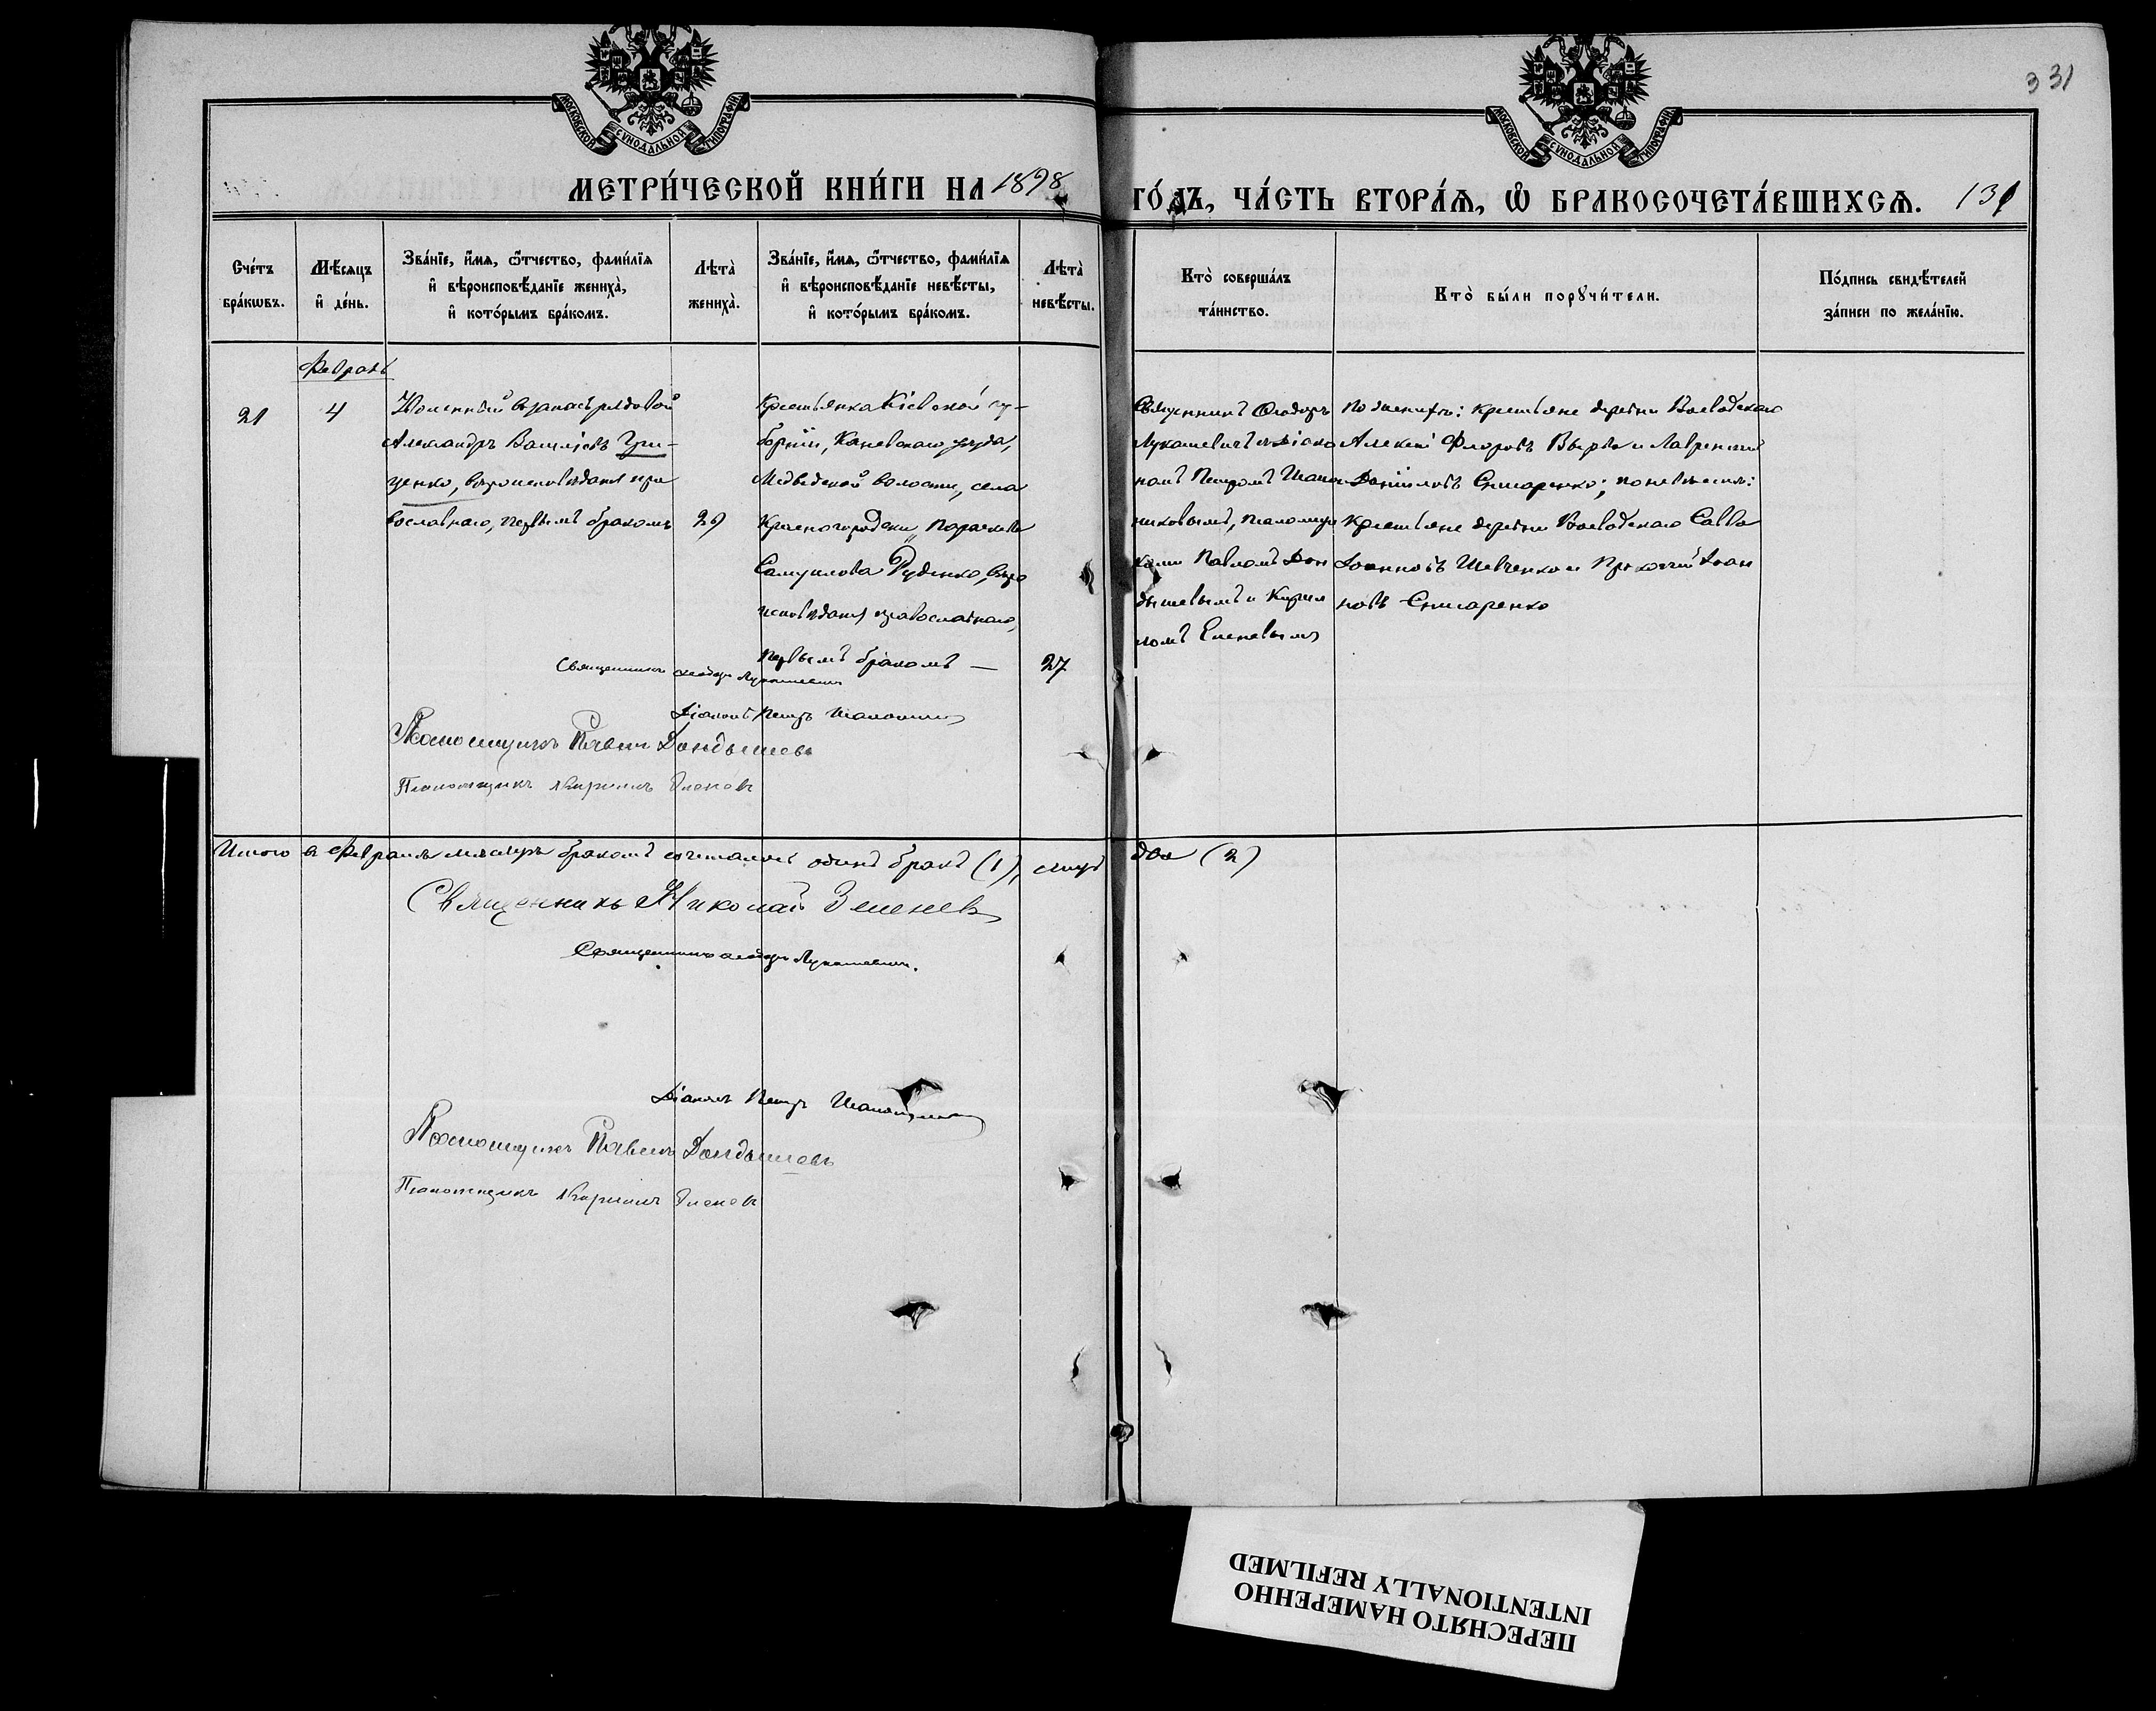 331
МОСКОВСКОЙ СѴНОДАЛЬНОЙ ТИПОГРАФІИ
МОСКОВСКОЙ СѴНОДАЛЬНОЙ ТИПОГРАФІИ
МЕТРИ́ЧЕСКОЙ КНИ́ГИ НА 1898
ГО́ДЪ, ЧА́СТЬ ВТОРА́Ѧ, Ѡ҆ БРАКОСОЧЕТА́ВШИХСѦ. 131
Сче́тъ
бра́кѡвъ.
Мѣ́сяцъ
и҆ де́нь.
Зва́нїе, и҆́мѧ, ѻ҆́тчество, фами́лїѧ
и҆ вѣроисповѣ́данїе жениха̀,
и҆ кото́рымъ бра́комъ.
Лѣта̀
жениха̀.
Зва́нїе, и҆́мѧ, ѻ҆́тчество, фами́лїѧ
и҆ вѣроисповѣ́данїе невѣ́сты,
и҆ кото́рымъ бра́комъ.
Лѣта̀
невѣ́сты.
Кто̀ соверша́лъ
та́инство.
Кто̀ бы́ли порꙋчи́тели.
По́дпись свидѣ́телей
за́писи по жела́нїю.
Февраль
21
4
Уволенный въ запасъ рядовой
Александръ Василіевъ Гри-
ценко, вѣроисповѣданія пра
вославнаго, первымъ бракомъ
29
Крестьянка Кіевской гу-
берніи, Каневскаго уѣзда,
Медвѣдской волости, села
Красногородски, Параскева
Самуилова Руденко, вѣро
исповѣданія православнаго,
первымъ бракомъ —
27
Священникъ Ѳеодоръ
Лукашевичъ съ Діако
номъ Петромъ Шапош
никовымъ, псаломщи
ками Павломъ Дон
дышевымъ и Кирил
ломъ Еленевымъ
По женихѣ: крестьяне деревни Воеводскаго
Алексій Флоровъ Вырва и Лаврентій
Даніиловъ Слюсаренко; по невѣстѣ:
крестьяне деревни Воеводскаго Савва
Іоанновъ Шевченко и Прокопій Іоан
новъ Слюсаренко
Священникъ Ѳеодоръ Лукашевичъ
Діаконъ Петръ Шапошниковъ
Псаломщикъ Павелъ Дондышевъ
Псаломщикъ Кириллъ Еленевъ
Итого въ Февралѣ мѣсяцѣ бракомъ сочетался одинъ бракъ (1), лицъ два (2)
Священникъ Николай Зеленевъ
Священникъ Ѳеодоръ Лукашевичъ.
Діаконъ Петръ Шапошниковъ
Псаломщикъ Павелъ Дондышевъ
Псаломщикъ Кириллъ Еленевъ
ПЕРЕСНЯТО НАМЕРЕННО
INTENTIONALLY REFILMED